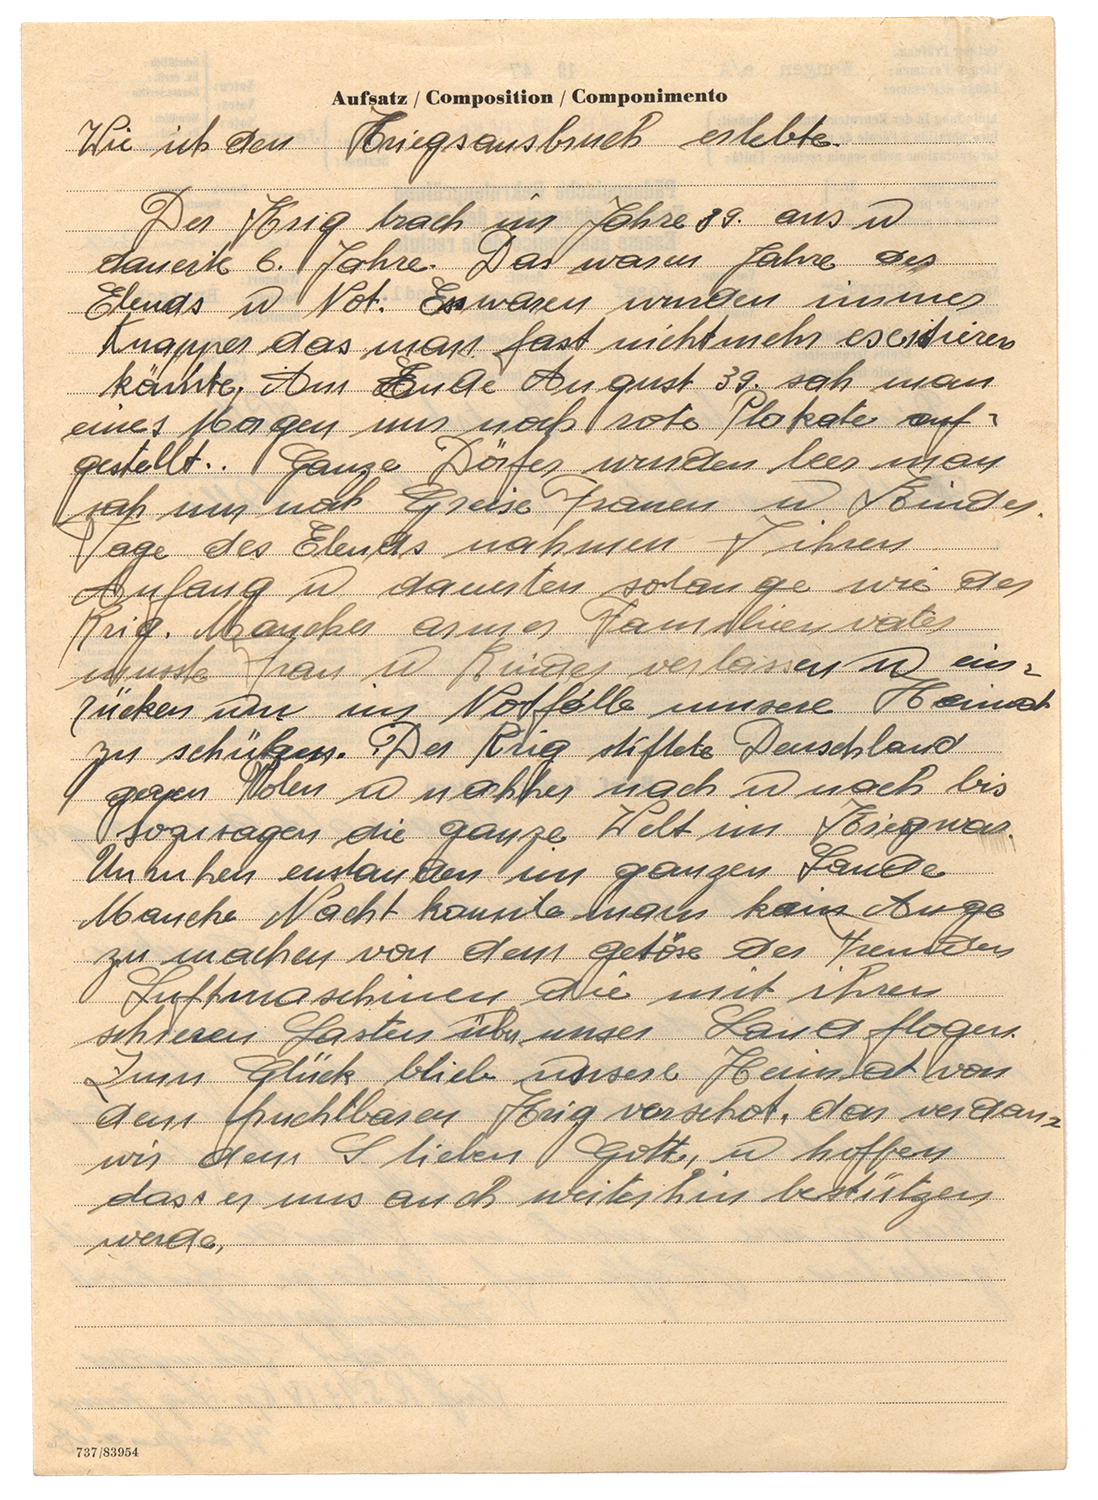 Aufsatz / Composition / Componimento
Wie ich den Kriegsausbruch erlebte.
Der Krig brach im Jahre 39. aus u
dauerte 6. Jahre. Das waren Jahre des
Elends u Not. Esswaren wurden immer
Knapper das man fast nichtmehr escistieren
könnte. Am Ende August 39. sah man
eines Morgen nur noch rote Plakate auf-
gestellt.. Ganze Dörfer wurden leer man
sah nur noch Greise Frauen u Kinder.
Tage des Elends nahmen Ihren
Anfang u dauerten solange wie der
Krig. Mancher armer Familienvater
musste Frau u Kinder verlassen u ein-
rücken um im Notfalle unsere Heimat
zu schützen. Der Krig stiftete Deuschland
gegen Polen u nahher nach u nach bis
sozusagen die ganze Welt im Krieg war.
Unruhen enstanden im ganzen Lande
Manche Nacht konnte man kein Auge
zu machen von dem getöse der Fremden
Luftmaschinen die mit ihren
schweren Lasten über unser Land flogen.
Zum Glück blieb unsere Heimat von
dem furchtbaren Krig verschot, das verdan-
wir dem lieben Gott., u hoffen
dass er uns auch weiterhin bestützen
werde,
737/83954